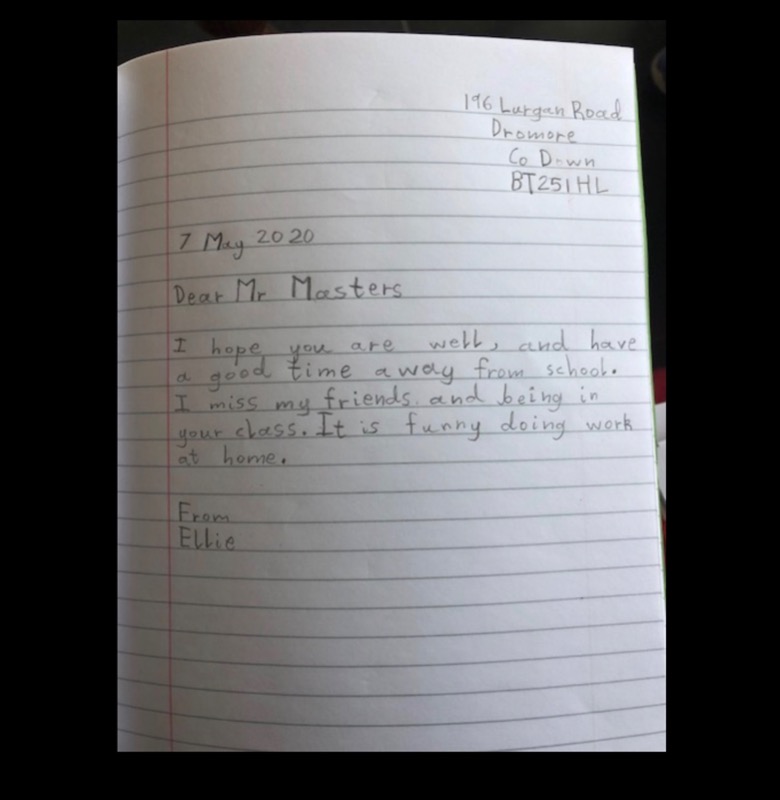 196 Lurgan Road
Dromore
Co Down
BT25 1HL
7 May 2020
Dear Mr Masters
I hope you are well, and have
a good time away from school.
I miss my friends and being in
your class. It is funny doing work
at home.
From
Ellie